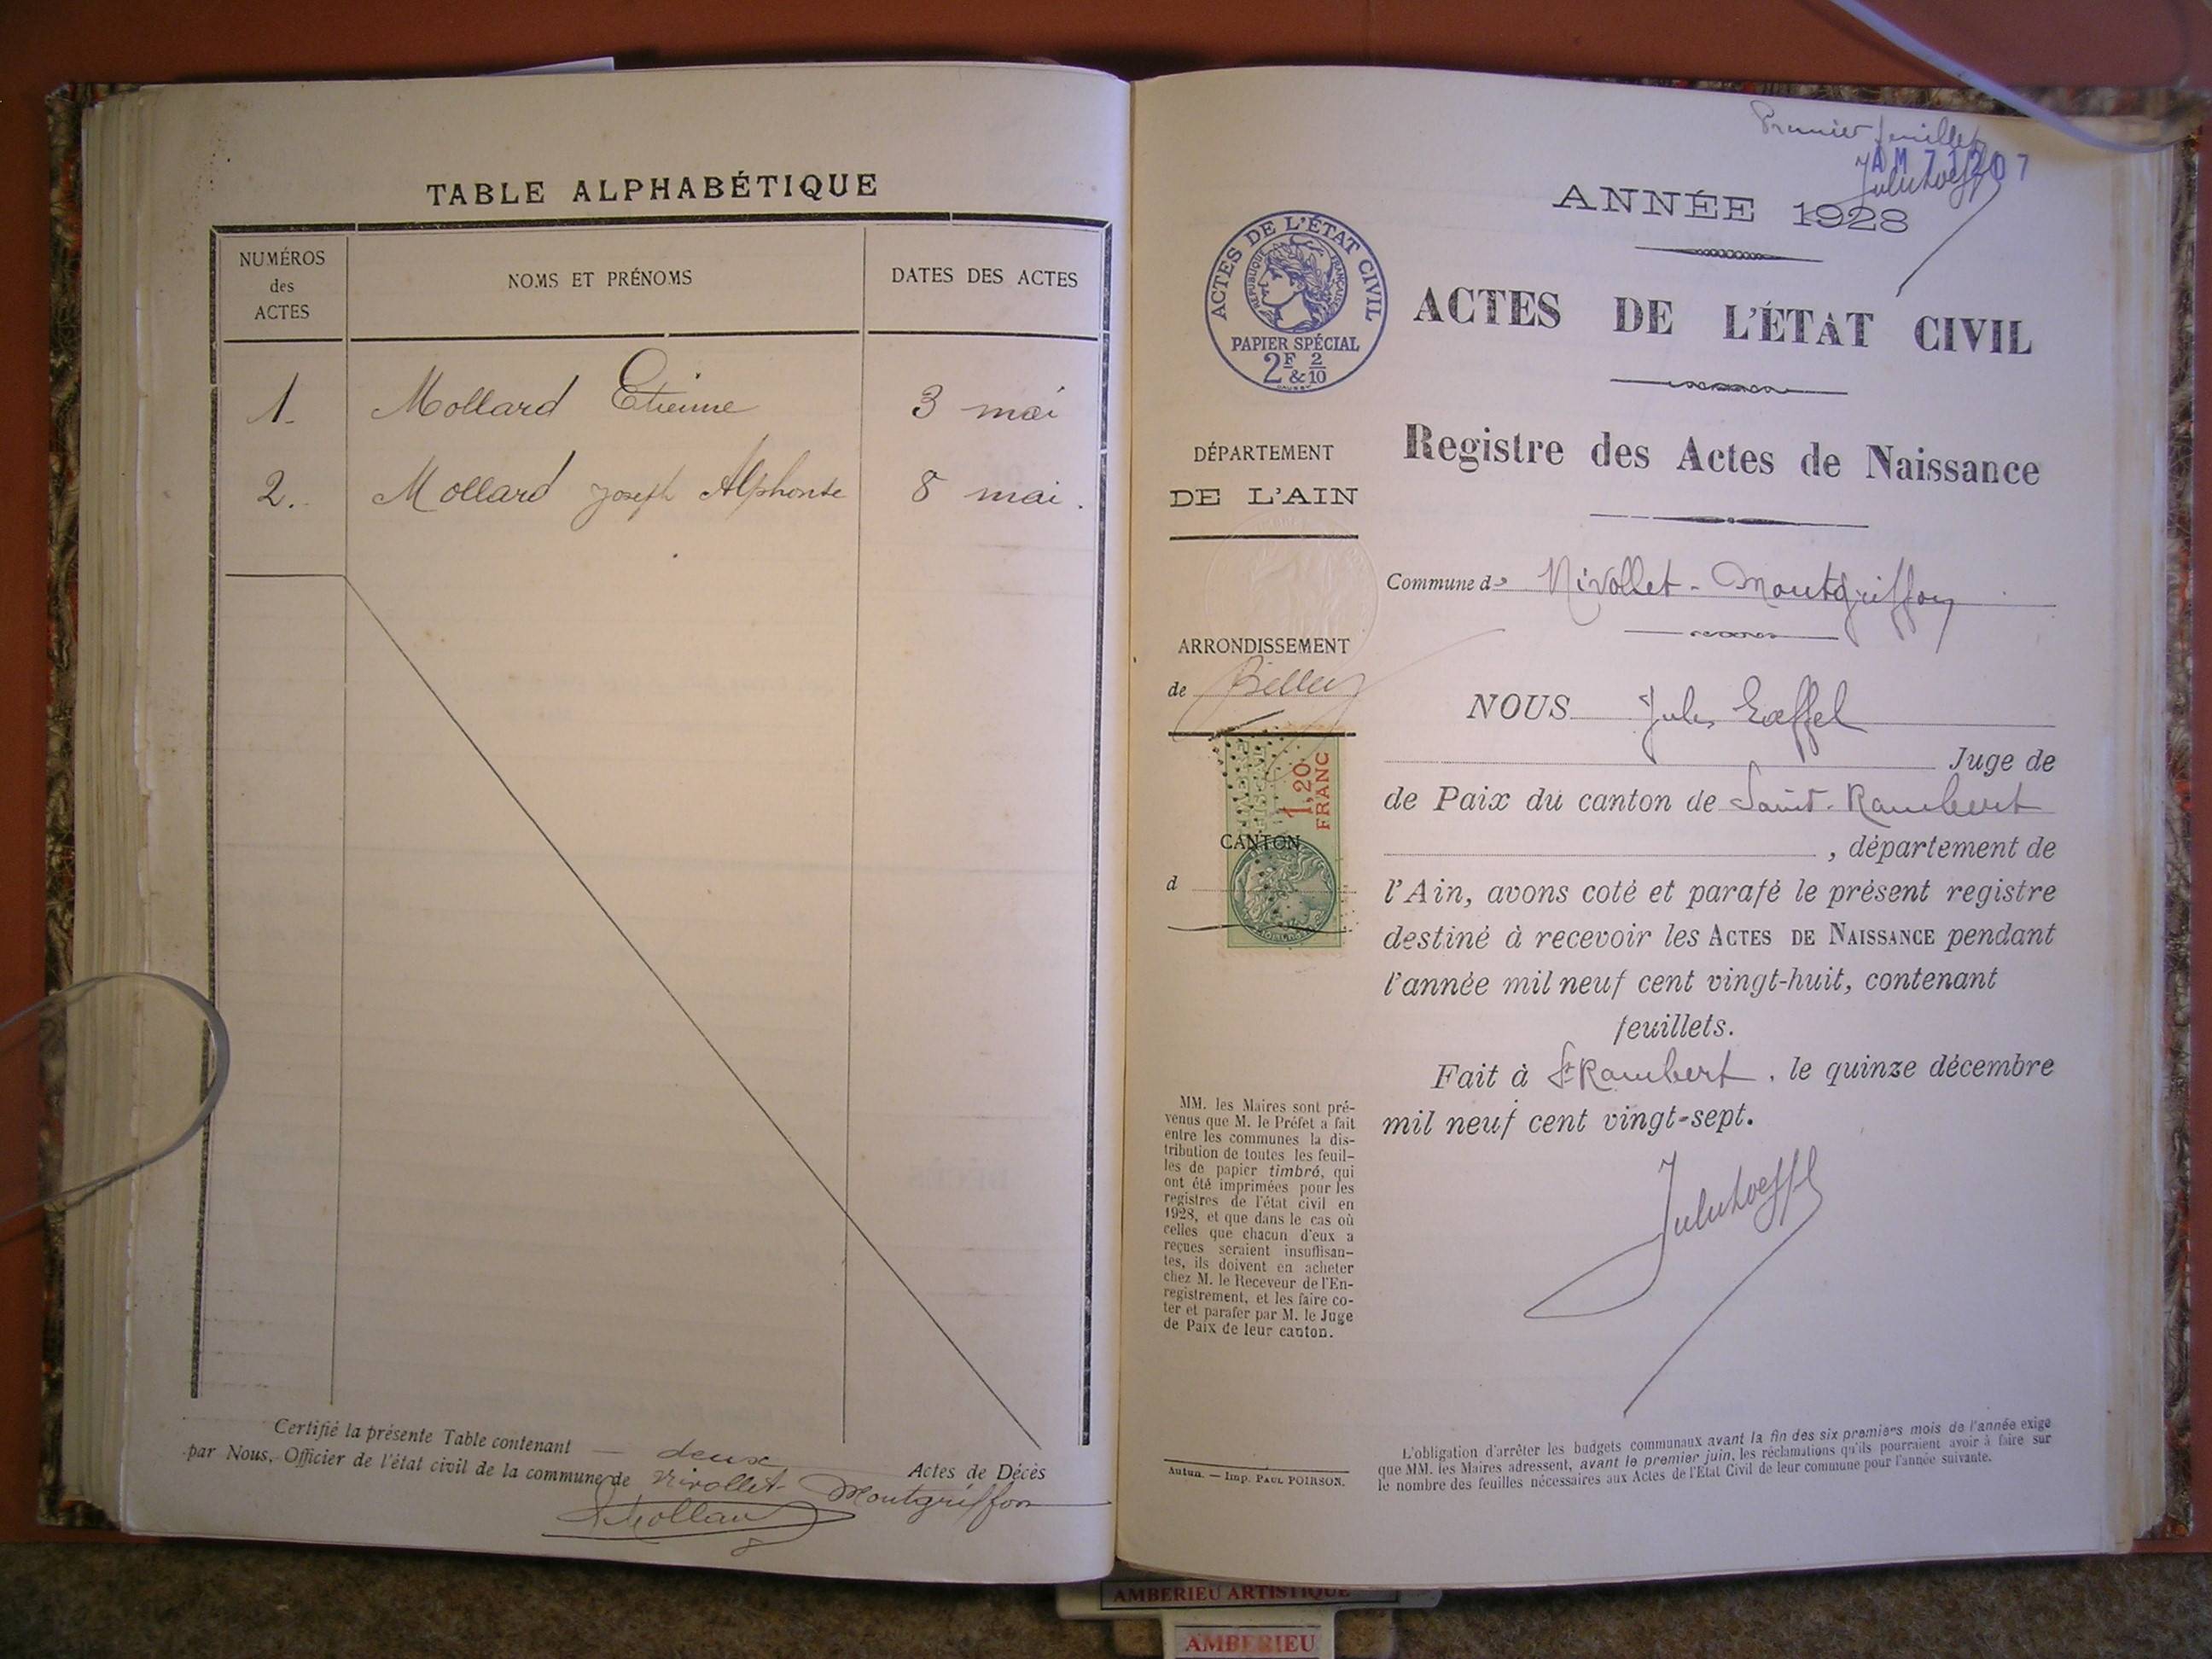 TABLE ALPHABÉTIQUE
NUMÉROS
des
ACTES
NOMS ET PRÉNOMS
DATES DES ACTES
1. Mollard Etienne 3 mai
2. Mollard Joseph Alphonse 8 mai.
Certifié la présente Table contenant — deux Actes de Décès
par Nous, Officier de l'état civil de la commune de Nivollet-Montgriffon
Mollard
Premier feuillet
AM 7 1207
ANNÉE 1928
ACTES DE L'ÉTAT CIVIL
RÉPUBLIQUE FRANÇAISE
PAPIER SPÉCIAL
2F & 2/10
ACTES DE L'ÉTAT CIVIL
Registre des Actes de Naissance
DÉPARTEMENT
DE L'AIN
Commune de Nivollet-Montgriffon
ARRONDISSEMENT
de Belley
1,20
FRANC
CANTON
d
NOUS Jules Loeffel
Juge de
de Paix du canton de Saint-Rambert
, département de
l'Ain, avons coté et parafé le présent registre
destiné à recevoir les ACTES DE NAISSANCE pendant
l'année mil neuf cent vingt-huit, contenant
feuillets.
Fait à St Rambert, le quinze décembre
mil neuf cent vingt-sept.
Jules Loeffel
MM. les Maires sont pré-
venus que M. le Préfet a fait
entre les communes la dis-
tribution de toutes les feuil-
les de papier timbré, qui
ont été imprimées pour les
registres de l'état civil en
1928, et que dans le cas où
celles que chacun d'eux a
reçues seraient insuffisan-
tes, ils doivent en acheter
chez M. le Receveur de l'En-
registrement, et les faire co-
ter et parafer par M. le Juge
de Paix de leur canton.
Autun. — Imp. PAUL POIRSON.
L'obligation d'arrêter les budgets communaux avant la fin des six premiers mois de l'année exige
que MM. les Maires adressent, avant le premier juin, les réclamations qu'ils pourraient avoir à faire sur
le nombre des feuilles nécessaires aux Actes de l'État Civil de leur commune pour l'année suivante.
AMBERIEU ARTISTIQUE
AMBERIEU